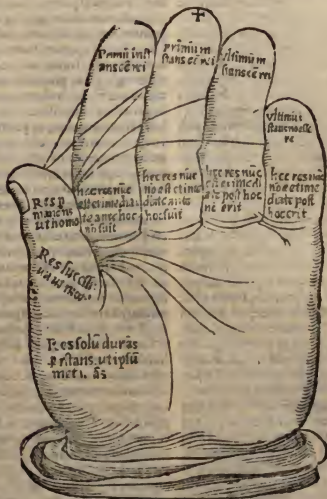 Primū inst
ans cē rei
primū m
stans cē rei
vltimū m
stans cē rei
vltimū i
stans nō esse
re
Res p
manens
ut homo
hec res nūc
est et īmedia
te ante hoc
nō fuit
hec res nūc
nō est et īme
diate ante
hoc fuit
hec res nūc
est et īmedi
ate post hoc
nō erit
hec res nūc
nō est et īme
diate post
hoc erit
Res succeſſi
ua ut
Res solū durās
p̄ ſtans. ut ipſū
met